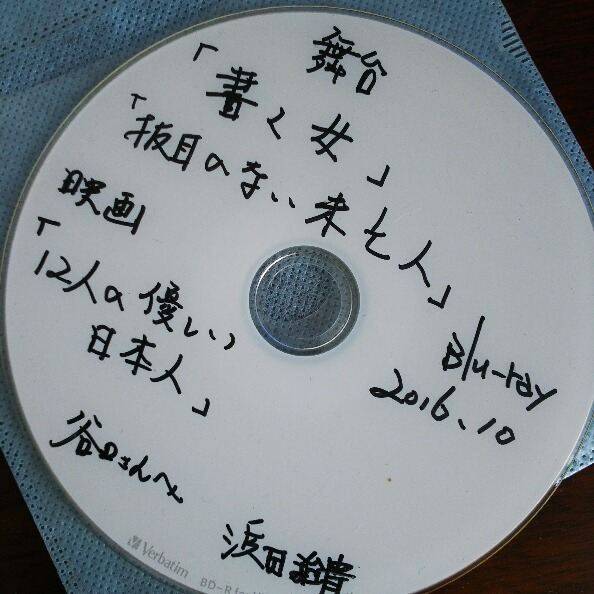 舞台
「書く女」
「抜目のない未亡人」
映画
「12人の優しい
日本人」
Blu-ray
2016.10
谷口さんへ
浜田
Verbatim
BD-R